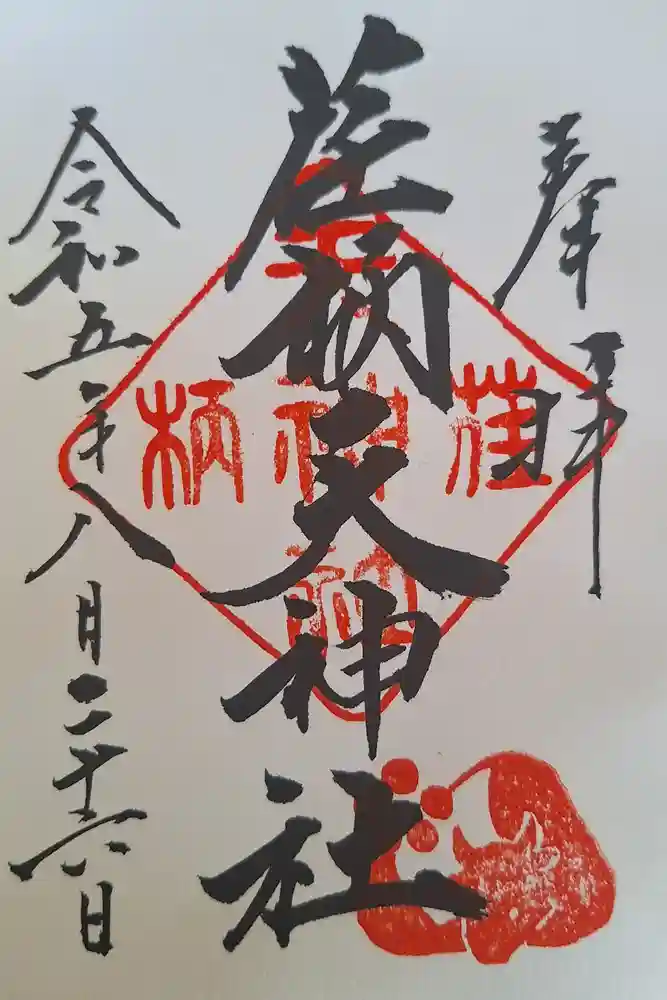 奉拝
荏柄天神社
令和五年八月二十六日
荏
柄
天
神
社